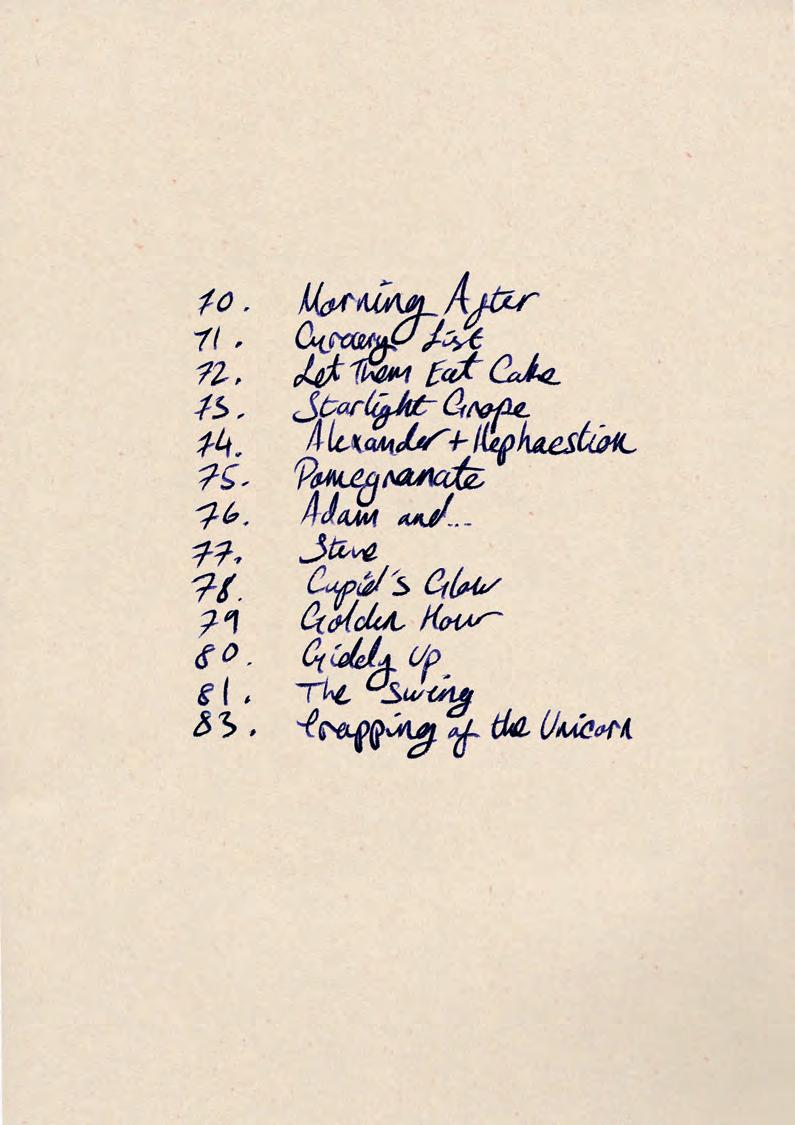 70. Morning After
71. Grocery List
72. Let Them Eat Cake
73. Starlight Grope
74. Alexander + Hephaestion
75. Pomegranate
76. Adam and...
77. Steve
78. Cupid's Glow
79 Golden Hour
80. Giddy Up
81. The Swing
83. Trapping of the Unicorn